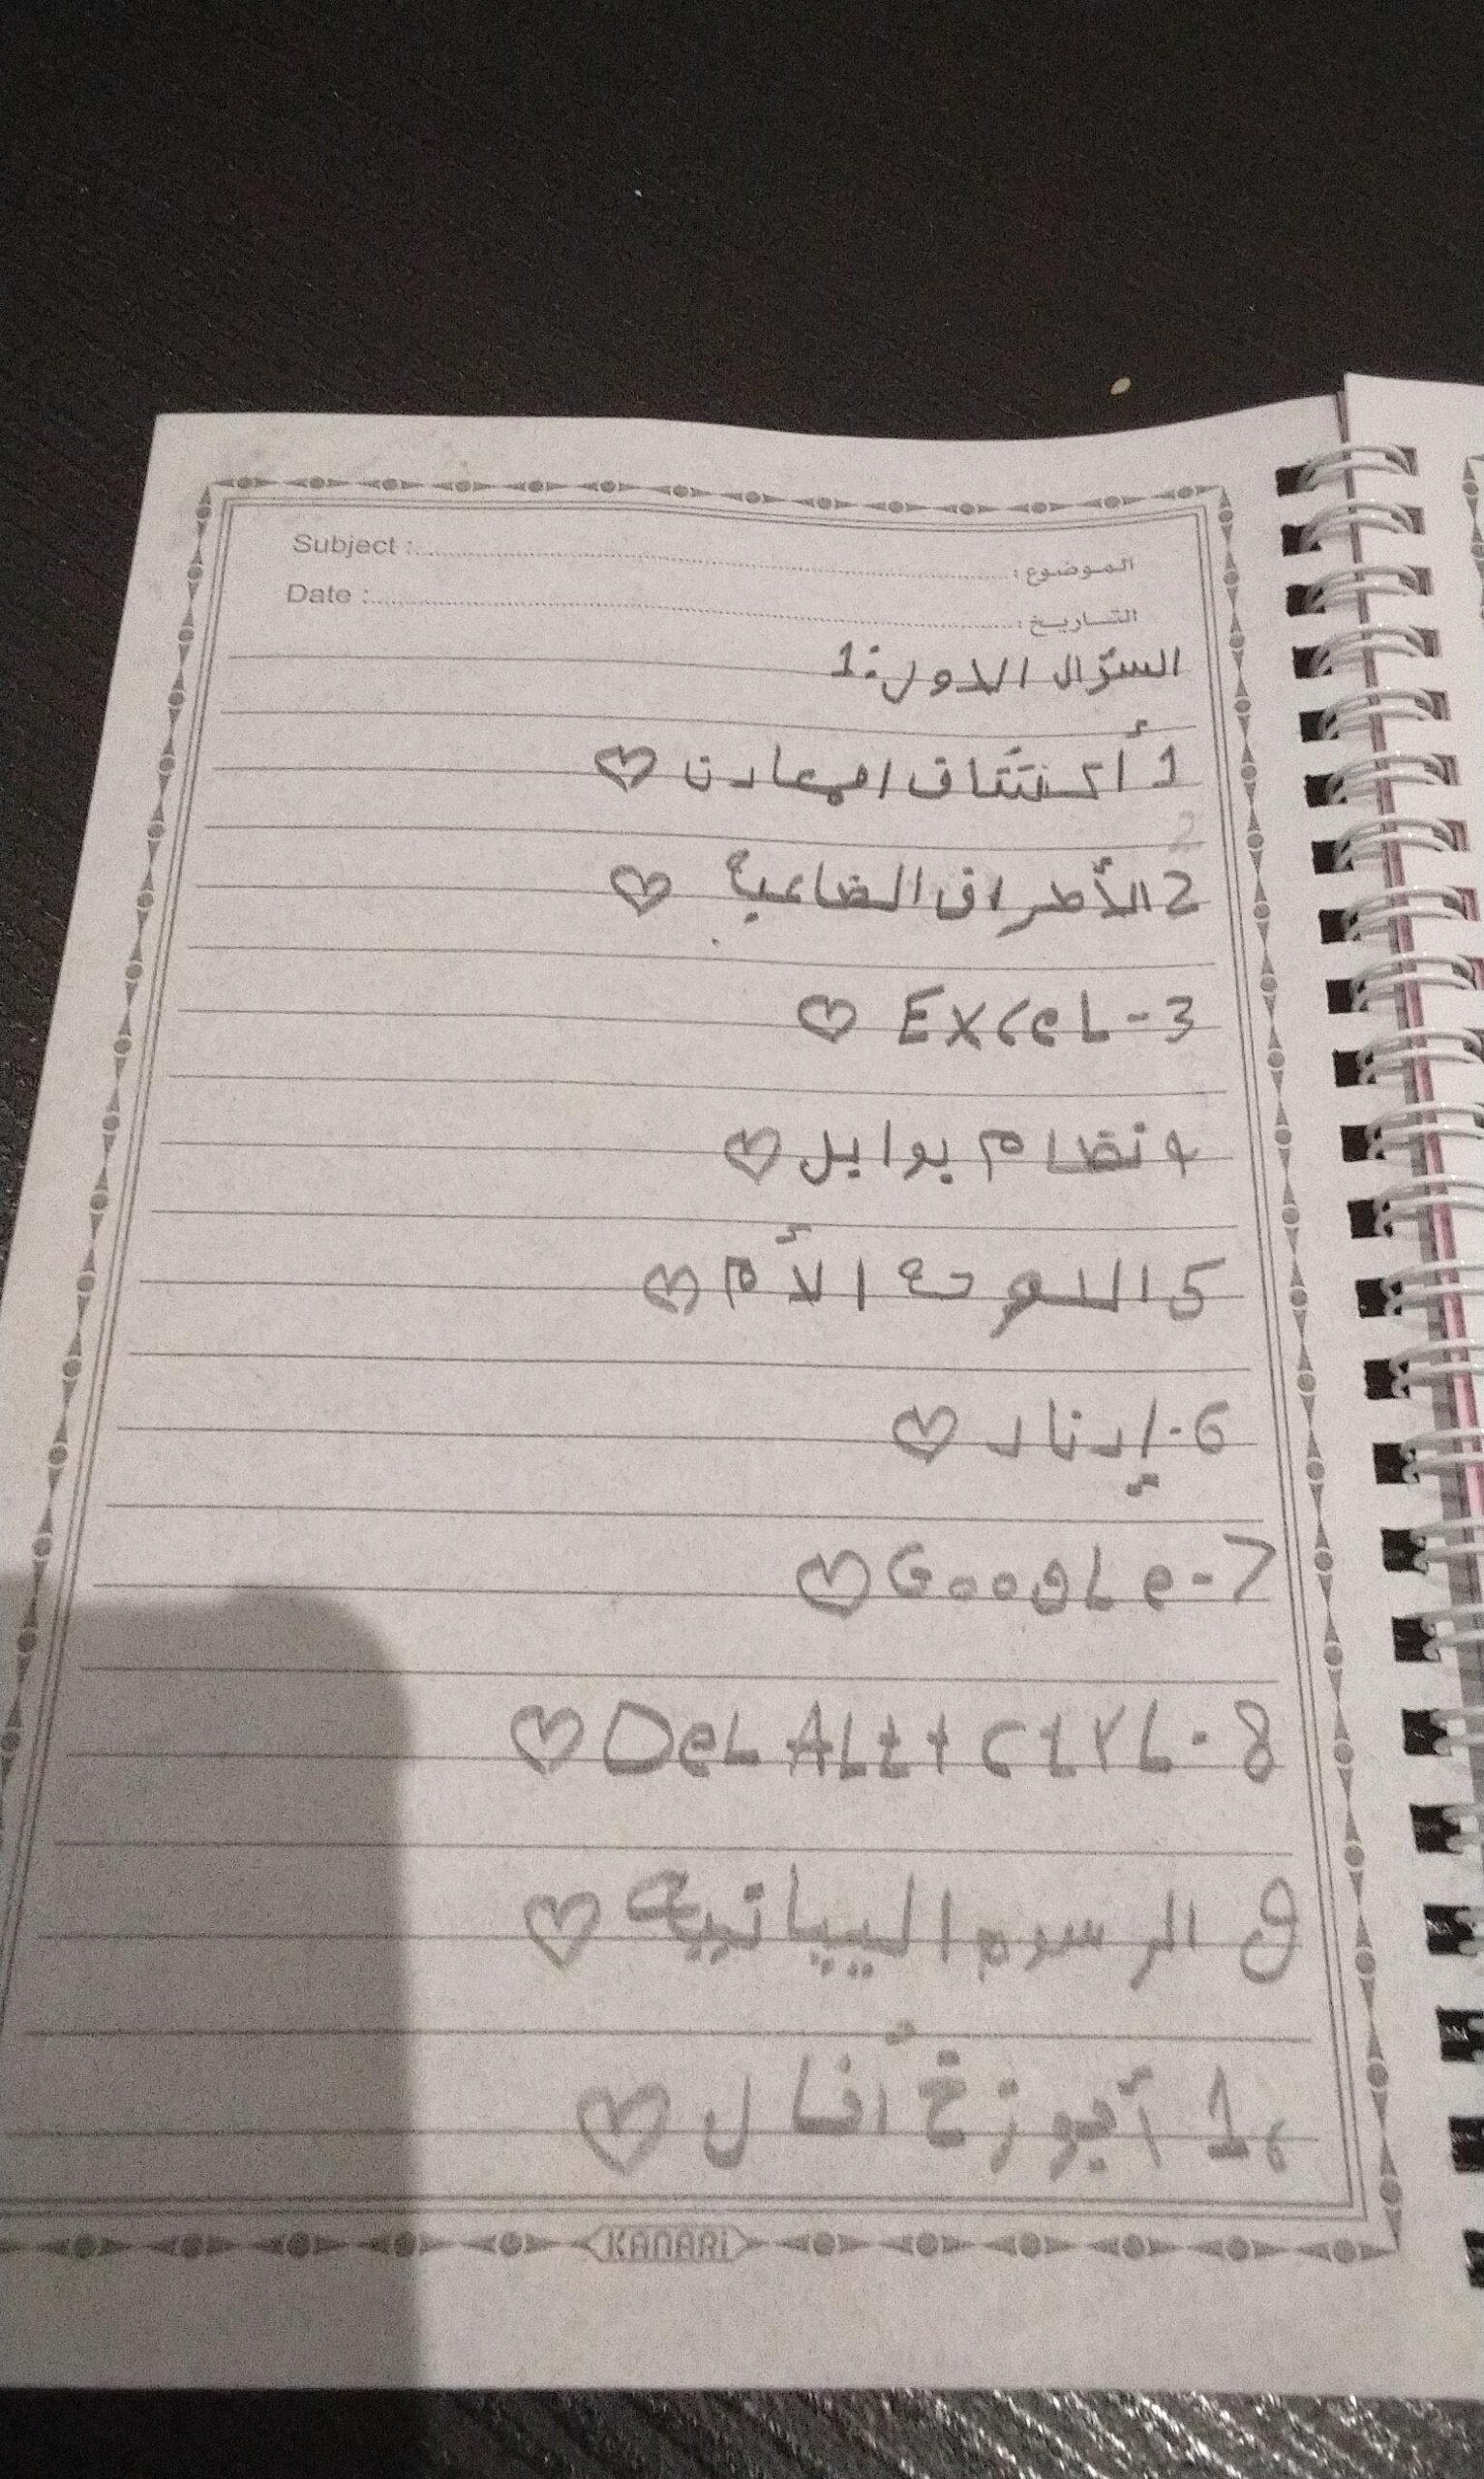 Subject : الموضوع :
Date : التاريخ :
السؤال الاول:1
1 أكتشاف المعادن
2
2 الأطراف الضاعية
3-Excel
4 نظام بوابل
5 اللوحة الأم
6-إدنار
7-Google
8-Del Alt+ctrl
9 الرسوم البيانية
10 أبوزخ أفال
KANARi